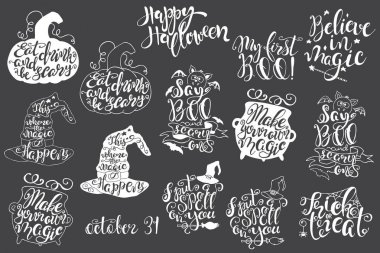 Happy
Halloween
Believe
in
magic
My first
BOO!
Eat drink
and be scary
Eat drink
and be scary
This
is where
the magic
Happens
This
is where
the magic
Happens
Say
BOO
and
scary
on
Make
your own
magic
Say
BOO
and
scary
on
Make
your own
magic
October 31
I put a
spell on
you
I put a
spell on
you
Trick
or
treat